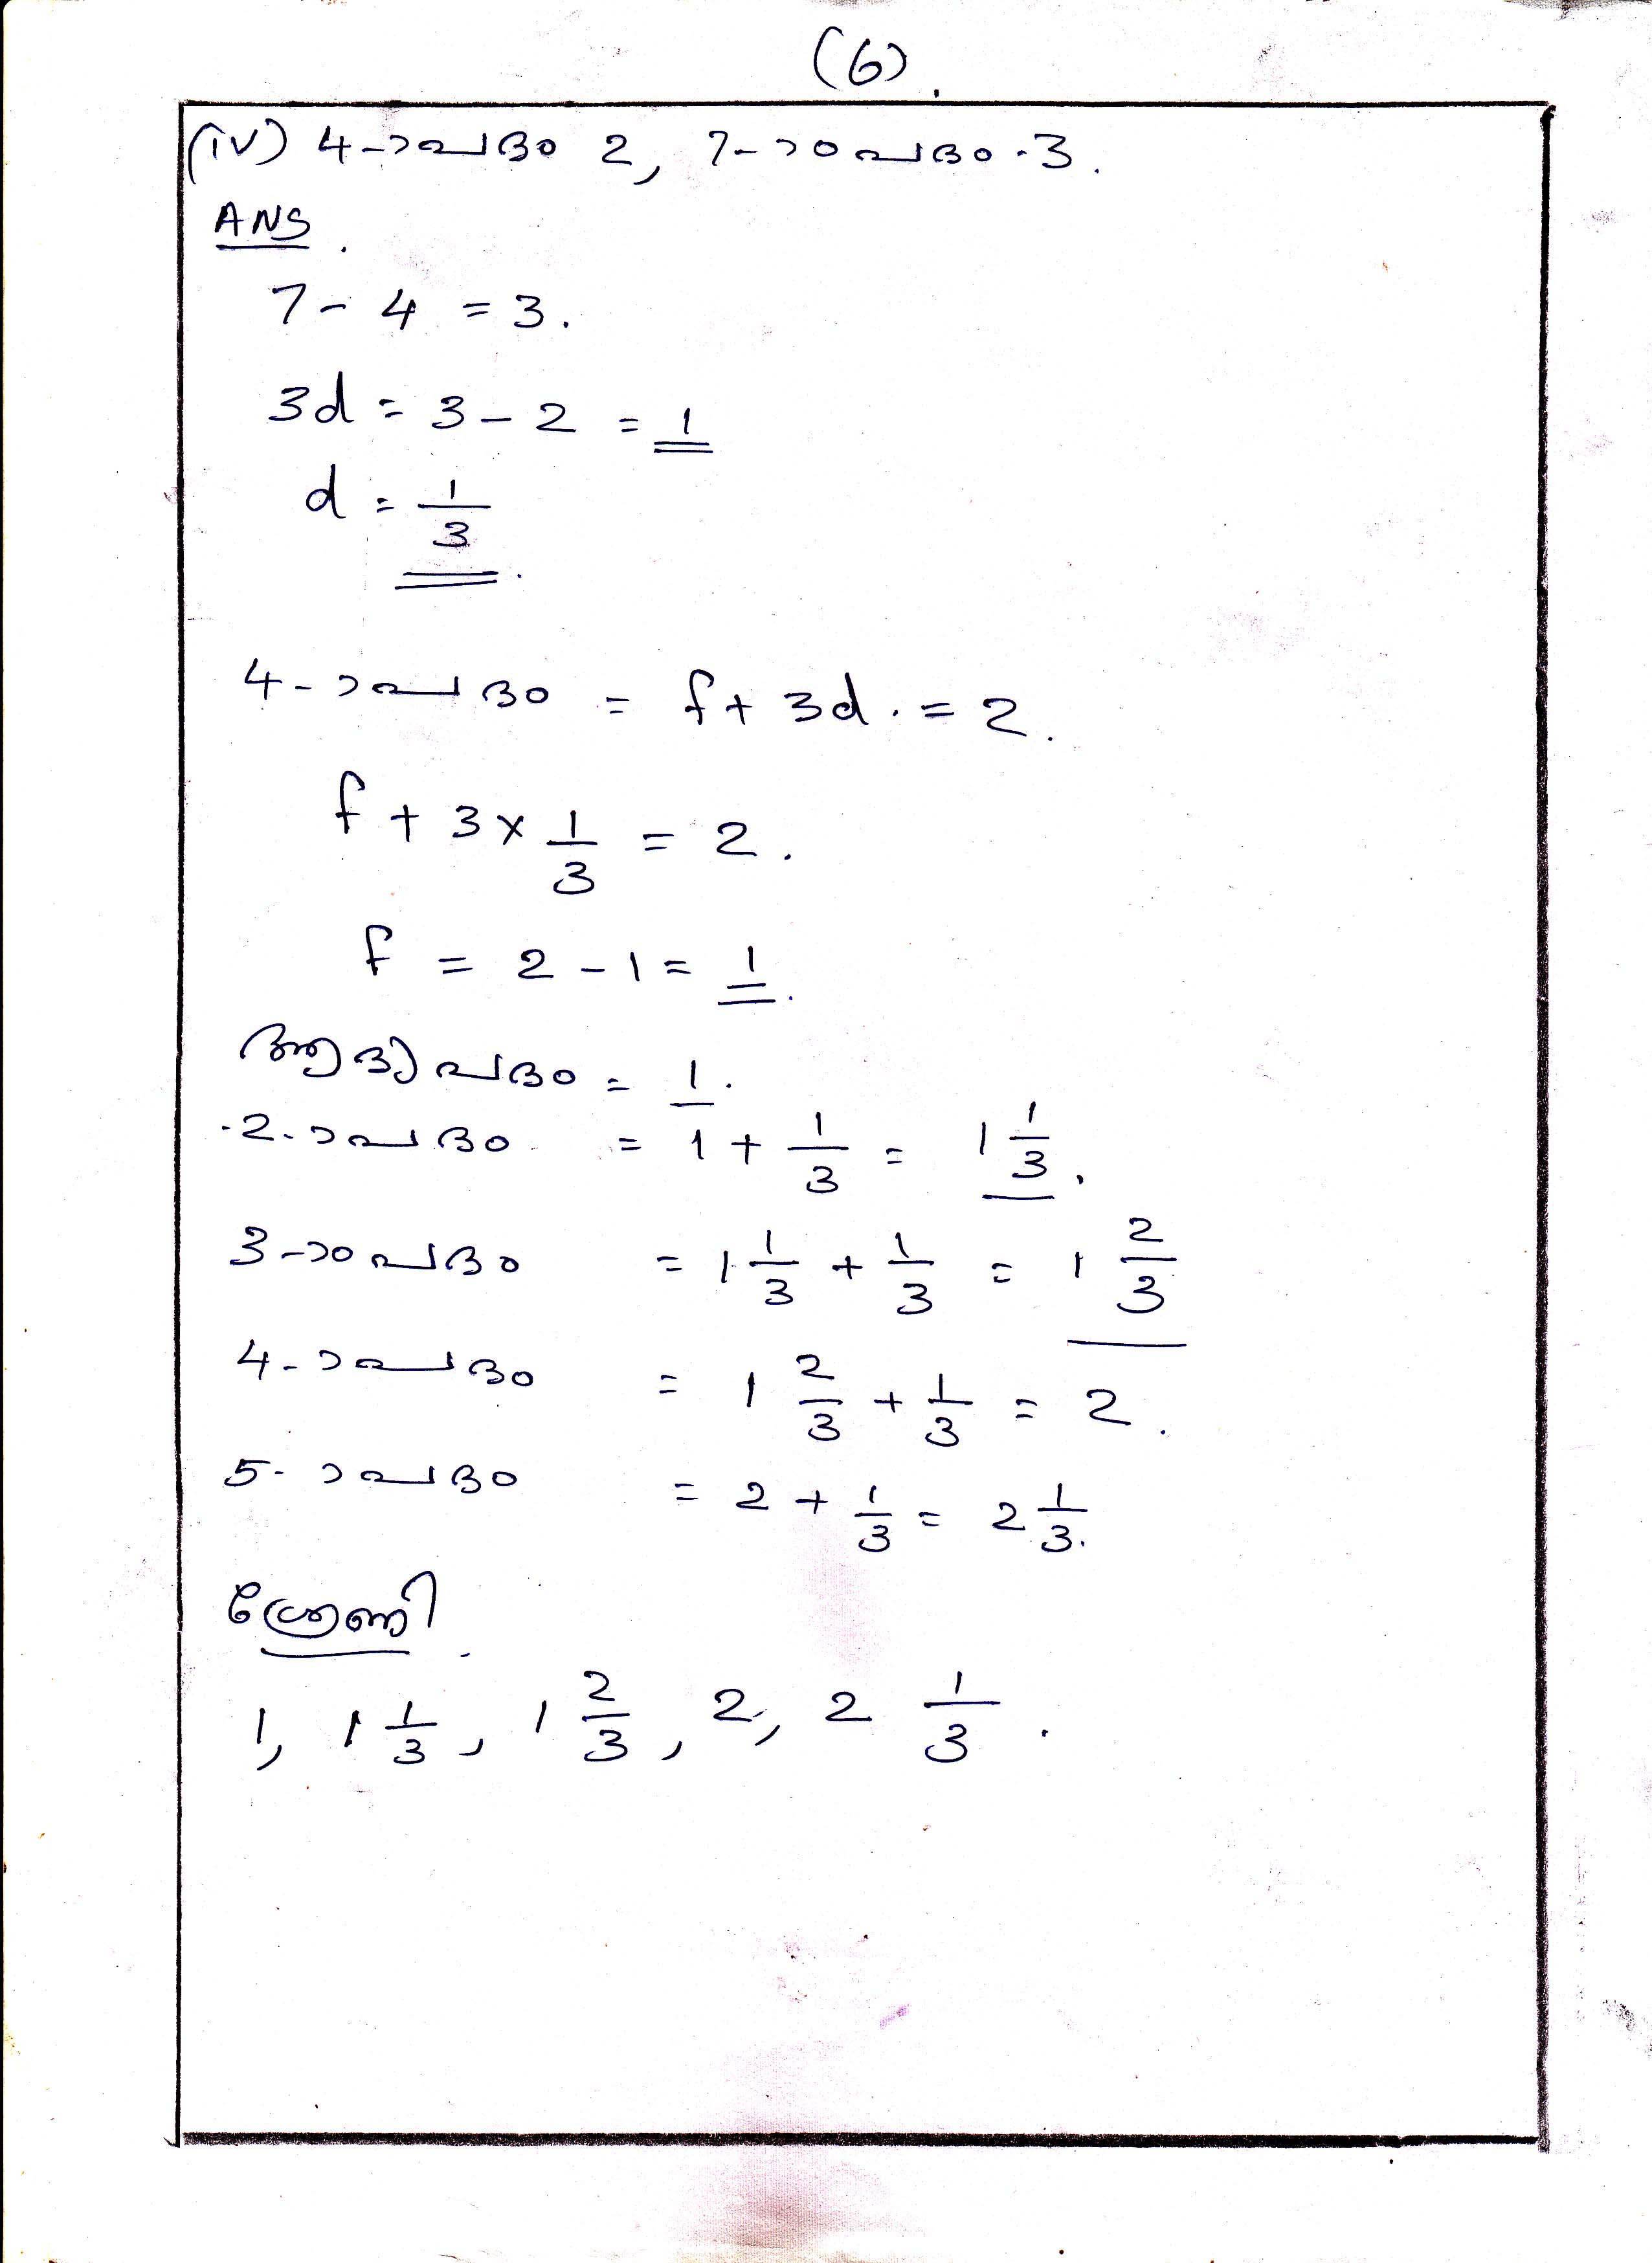 (6).
(iv) 4-ാംപദം 2, 7-ാം പദം 3.
ANS.
7 - 4 = 3.
3d = 3 - 2 = 1
d = 1/3.
4-ാംപദം = f + 3d. = 2.
f + 3 x 1/3 = 2.
f = 2 - 1 = 1.
ആദ്യപദം = 1.
2-ാംപദം = 1 + 1/3 = 1 1/3.
3-ാം പദം = 1 1/3 + 1/3 = 1 2/3
4-ാംപദം = 1 2/3 + 1/3 = 2.
5-ാംപദം = 2 + 1/3 = 2 1/3.
ശ്രേണി.
1, 1 1/3, 1 2/3, 2, 2 1/3.